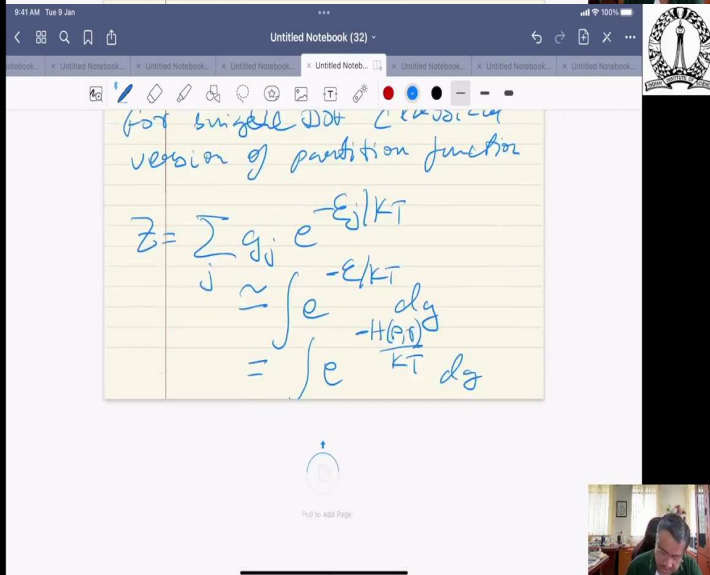 9:41 AM Tue 9 Jan
100%
Untitled Notebook (32)
Untitled Notebook... Untitled Notebook... Untitled Notebook... Untitled Noteb... Untitled Notebook... Untitled Notebook... Untitled Notebook...
for DOF
version of partition function
Z = ∑_j g_j e^{-ε_j/KT}
≃ ∫ e^{-ε/KT} dg
= ∫ e^{-H(p,q)/KT} dg
Pull to Add Page